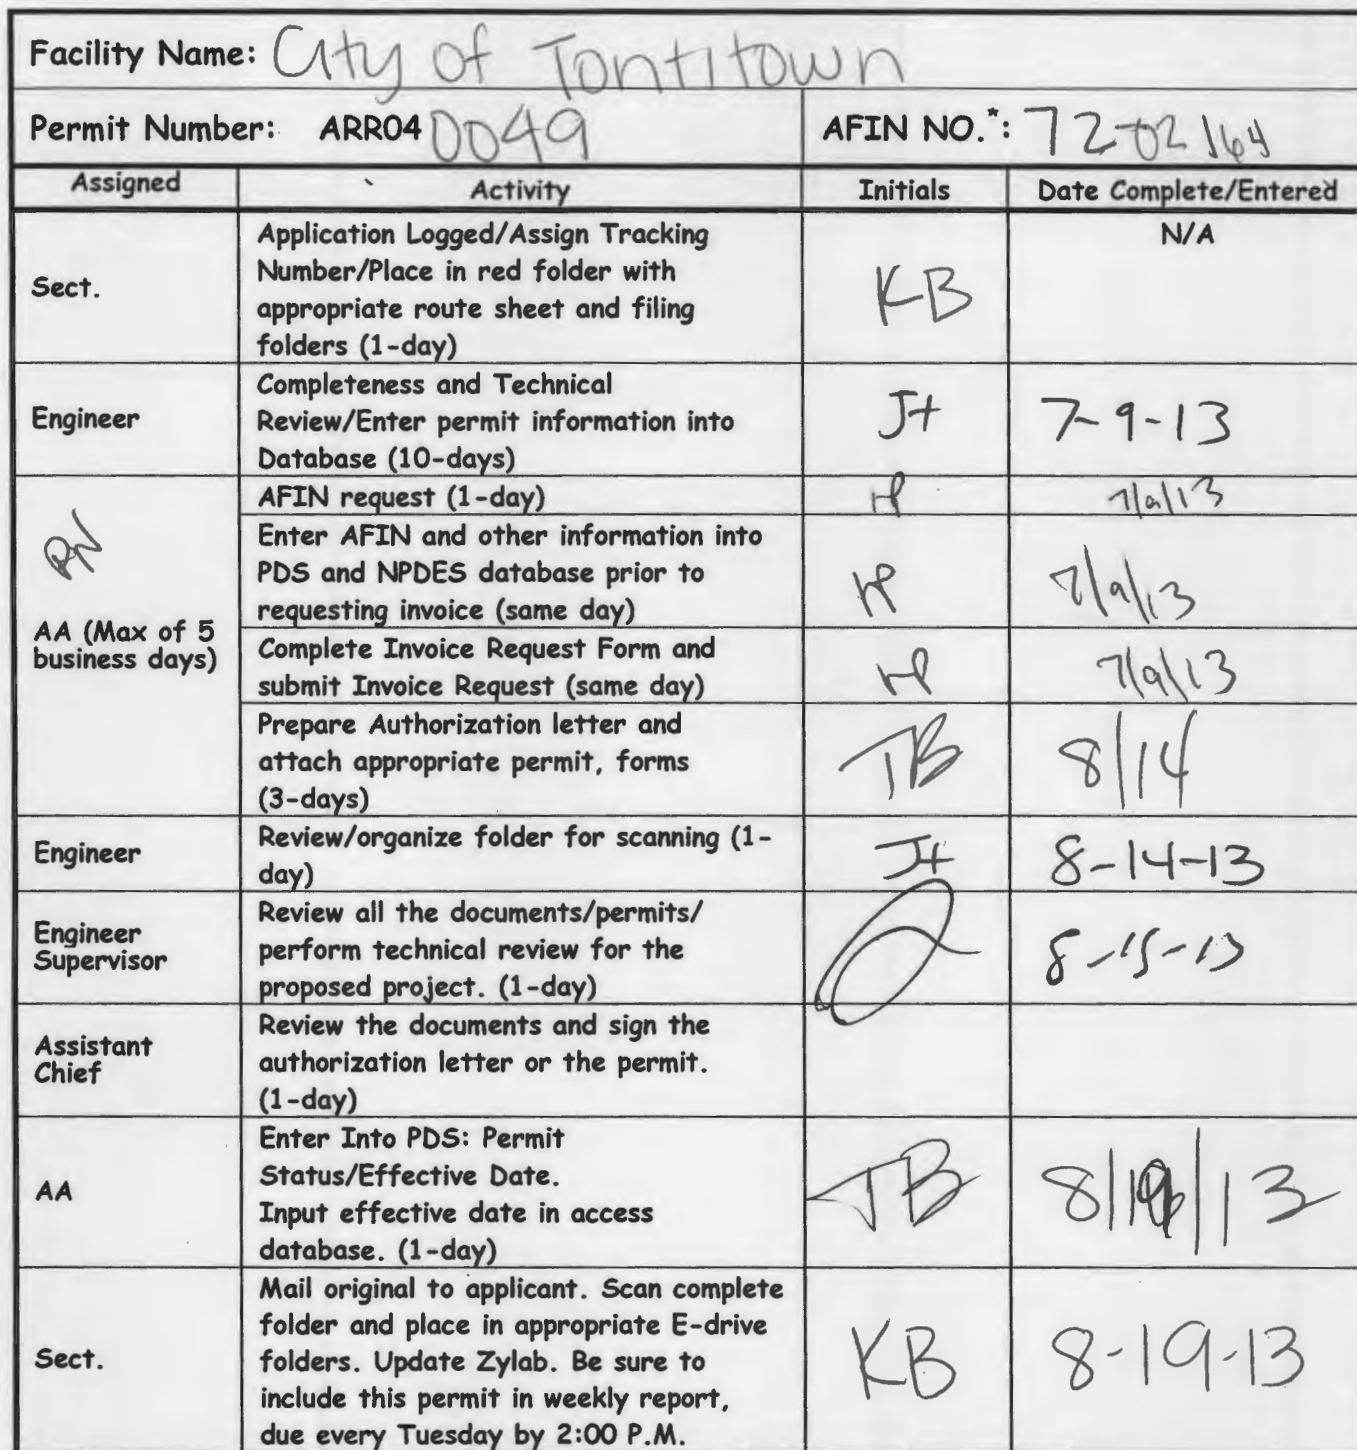 Facility Name: City of Tontitown
Permit Number: ARR04 0049 AFIN NO.*: 72-02164
Assigned Activity Initials Date Complete/Entered
Sect.
Application Logged/Assign Tracking
Number/Place in red folder with
appropriate route sheet and filing
folders (1-day)
KB
N/A
Engineer
Completeness and Technical
Review/Enter permit information into
Database (10-days)
Jt
7-9-13
AA (Max of 5
business days)
AFIN request (1-day)
7/9/13
Enter AFIN and other information into
PDS and NPDES database prior to
requesting invoice (same day)
7/9/13
Complete Invoice Request Form and
submit Invoice Request (same day)
7/9/13
Prepare Authorization letter and
attach appropriate permit, forms
(3-days)
TB
8/14
Engineer
Review/organize folder for scanning (1-
day)
Jt
8-14-13
Engineer
Supervisor
Review all the documents/permits/
perform technical review for the
proposed project. (1-day)
8-15-13
Assistant
Chief
Review the documents and sign the
authorization letter or the permit.
(1-day)
AA
Enter Into PDS: Permit
Status/Effective Date.
Input effective date in access
database. (1-day)
TB
Sect.
Mail original to applicant. Scan complete
folder and place in appropriate E-drive
folders. Update Zylab. Be sure to
include this permit in weekly report,
due every Tuesday by 2:00 P.M.
KB
8-19-13